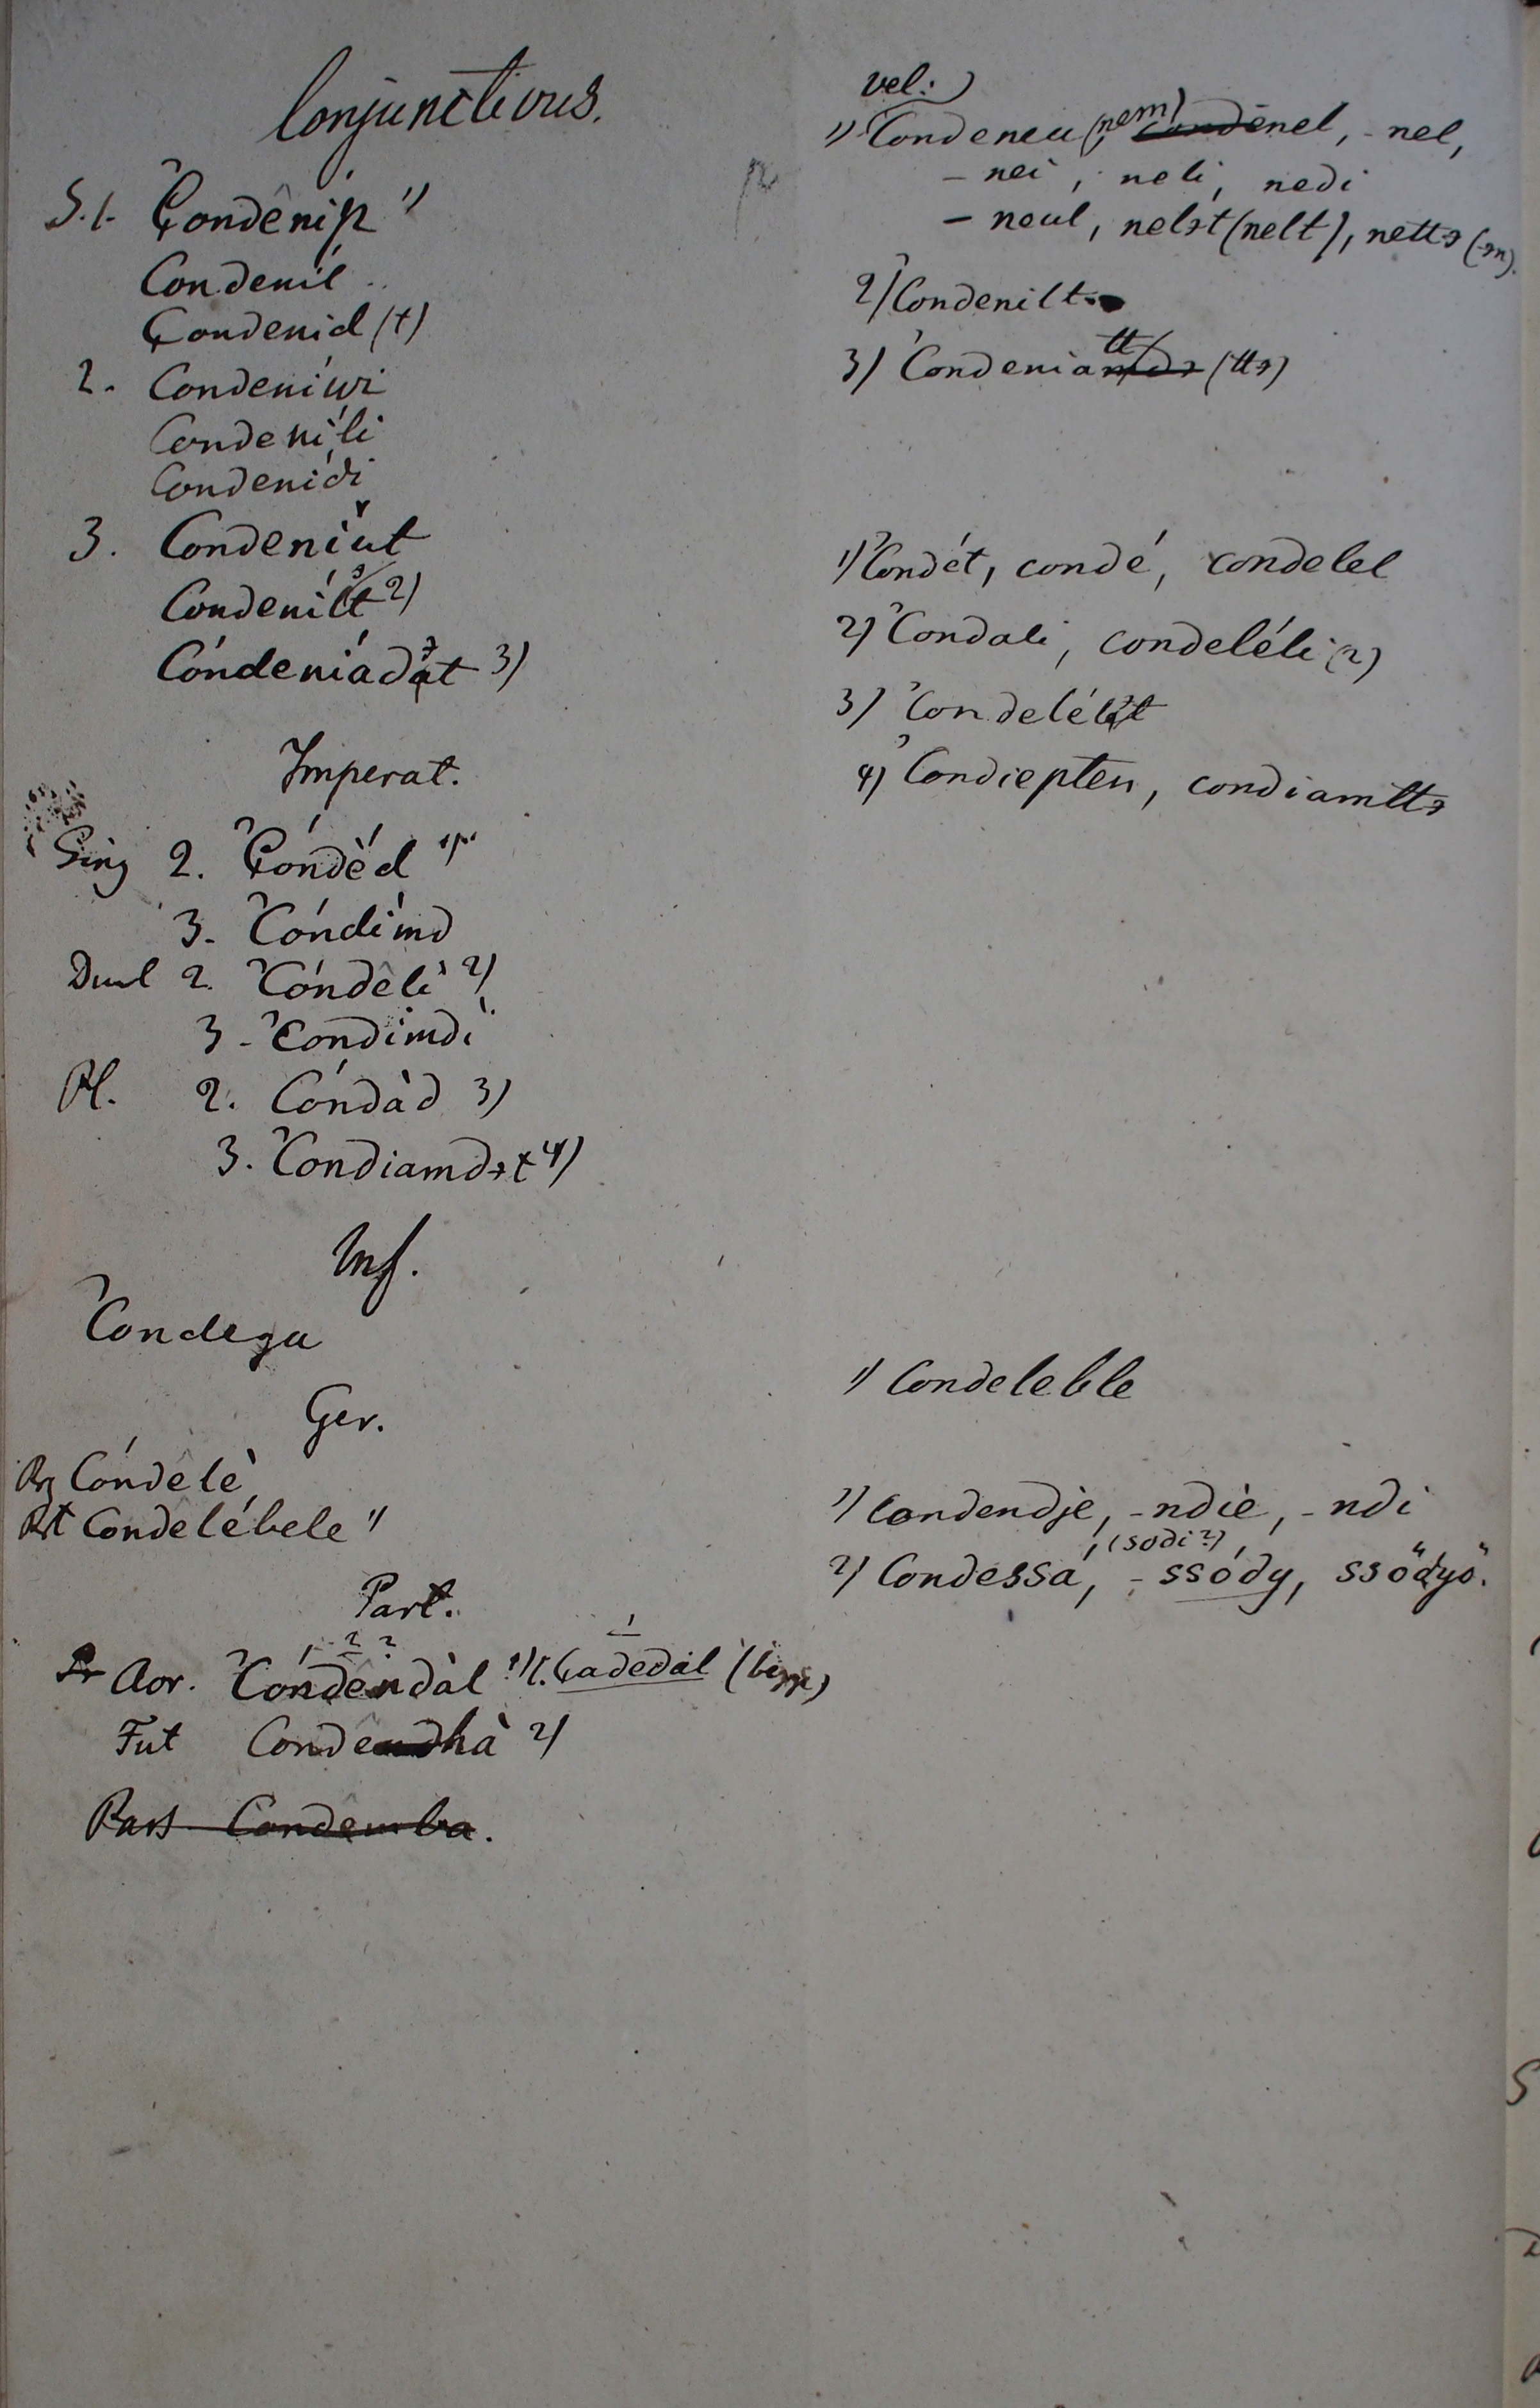 Conjunctivus.
S. 1. Çondênip 1)
Condenil
Çondenid (t)
2. Condeníwi
Condeníli
Condenidi
3. Condeniut
Condenílt 2)
Cóndeniádət 3)
Imperat.
Sing 2. Çóndèd 1)
3. Cóndímd
Dual 2. Cóndêlì 2)
3. Condimdì
Pl. 2. Cóndàd 3)
3. Condiamdət 4)
Inf.
Condegu
Ger.
Prs Cóndêlè
Prt Condelébele 1)
Part.
Aor. Cóndêndàl 1)
Fut Condehà 2)
Pass Condemba.
vel:)
1) Condeneu (nem) condênel, - nel,
- nei, neli, nedi
- neul, nelət (nelt), nettə (-ən).
2) Condenilt
3) Condenia tt (ttə)
1) Condét, condé, condelel
2) Condali, condeléli (2)
3) Condelélət
4) Condiepten, condiamttə
1) Condeleble
1) Condendje, - ndie, - ndi
(sodi?)
2) Condessá, - ssódy, ssödyö.